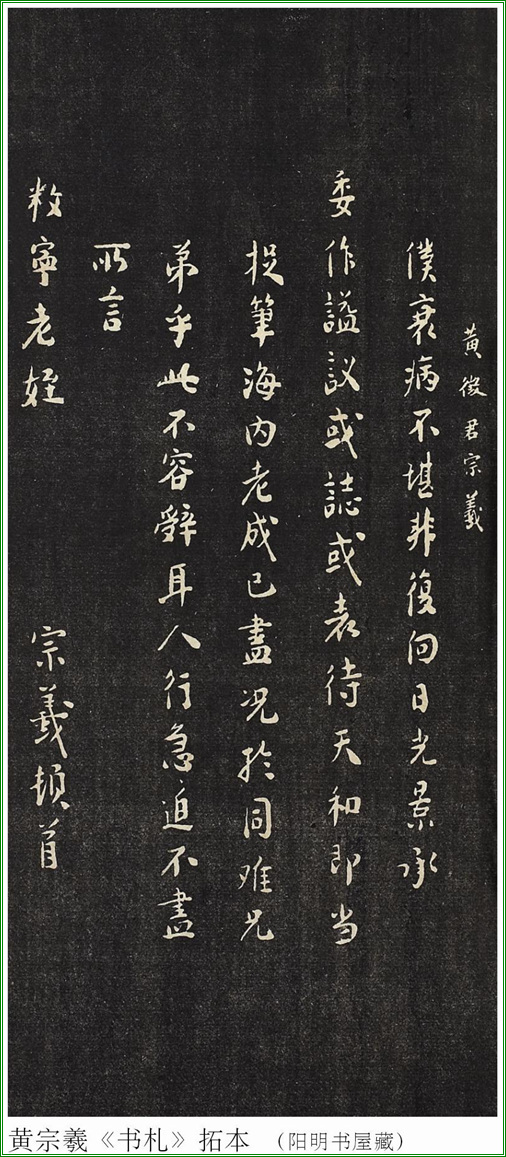 黄徵君宗羲
僕衰病不堪非復向日光景承
委作謚議或誌或表待天和即当
捉筆海内老成已盡况於同难兄
弟乎此不容辭耳人行急迫不盡
所言
敉寧老姪
宗羲頓首
黄宗羲《书札》拓本 （阳明书屋藏）